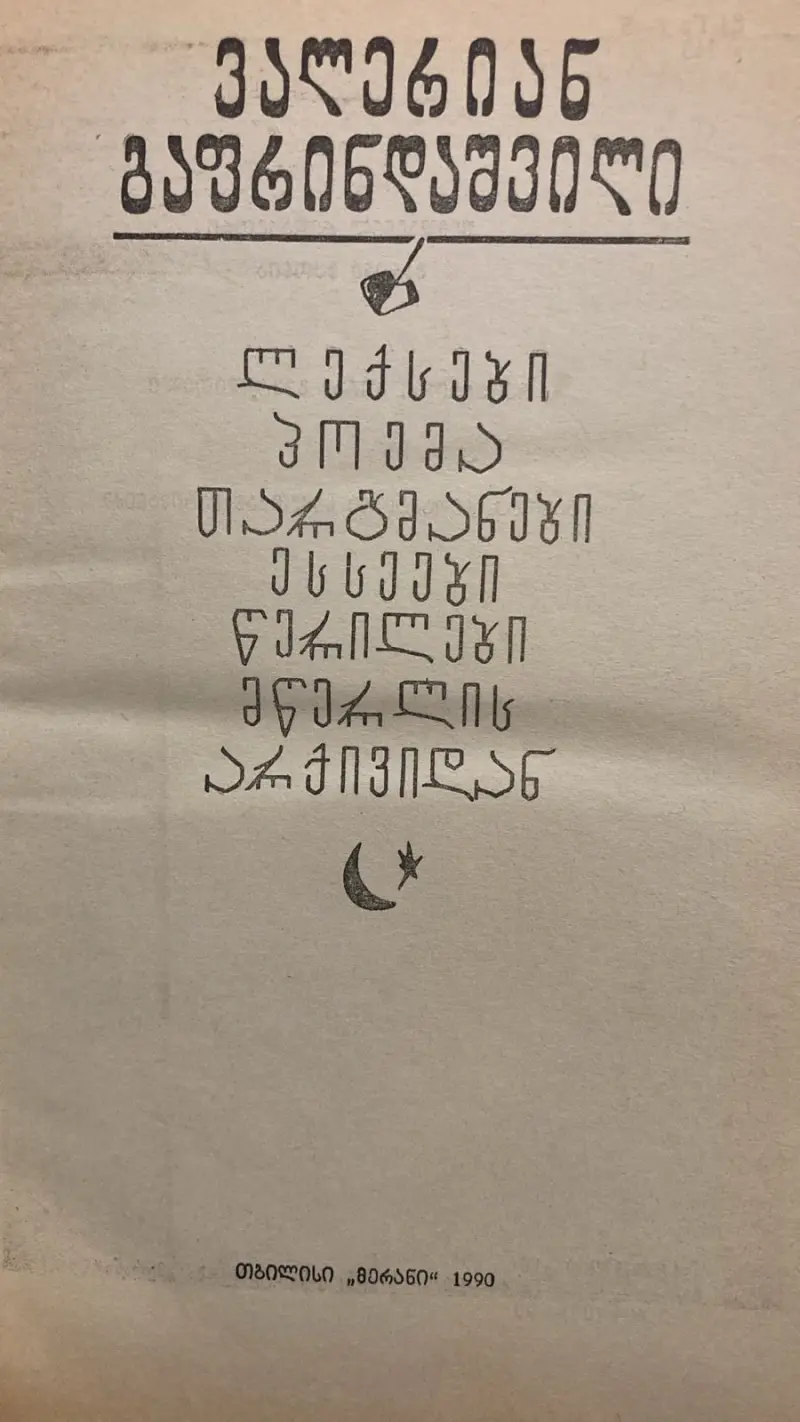 ვალერიან
გაფრინდაშვილი
ლექსები
პოემა
თარგმანები
ესსეები
წერილები
მწერლის
არქივიდან
თბილისი „მერანი“ 1990